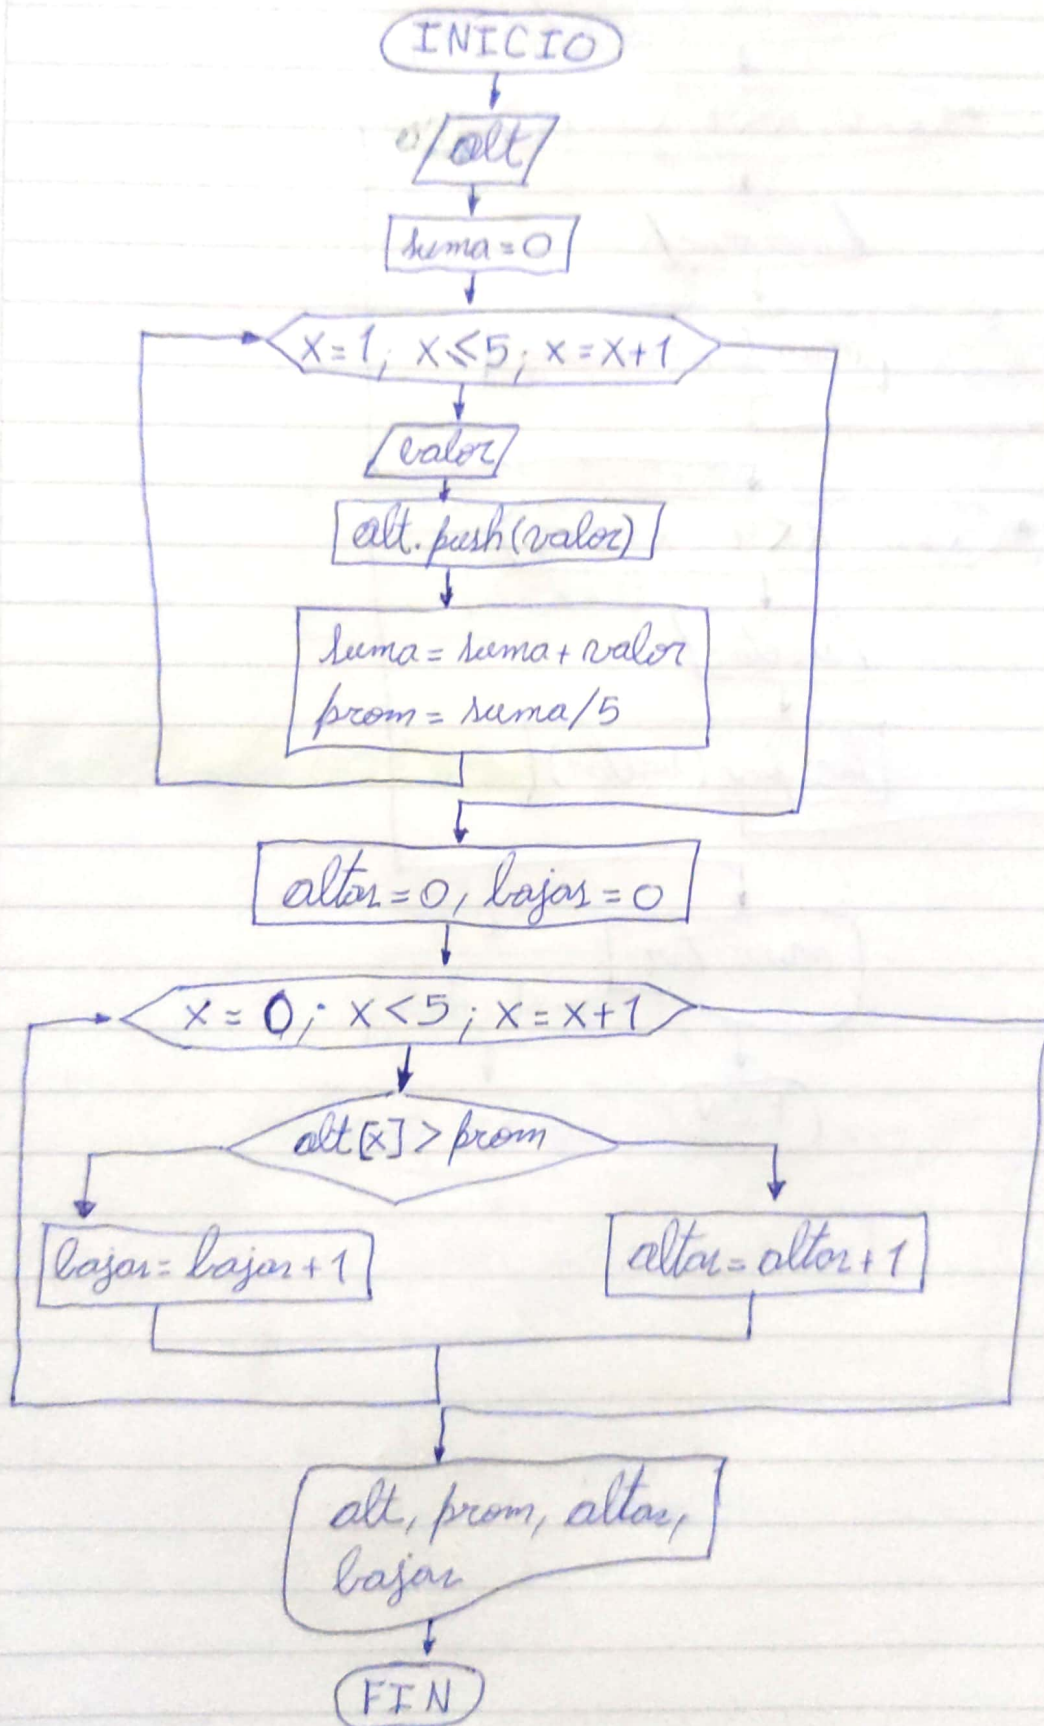 INICIO
alt
suma = 0
x = 1; x ≤ 5; x = x + 1
valor
alt.push(valor)
suma = suma + valor
prom = suma/5
altas = 0, bajas = 0
x = 0; x < 5; x = x + 1
alt[x] > prom
bajas = bajas + 1
altas = altas + 1
alt, prom, altas,
bajas
FIN